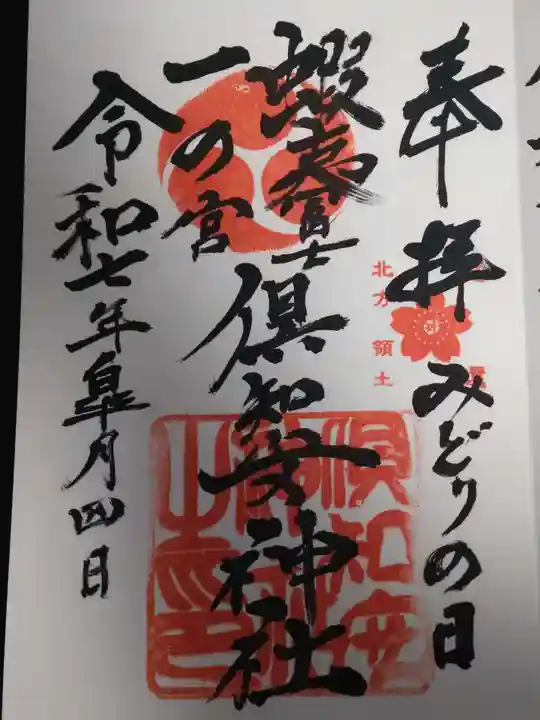 奉拝 みどりの日
北方領土
蝦夷富士 倶知安神社
一の宮
令和七年皐月四日
倶知安
神社
之印